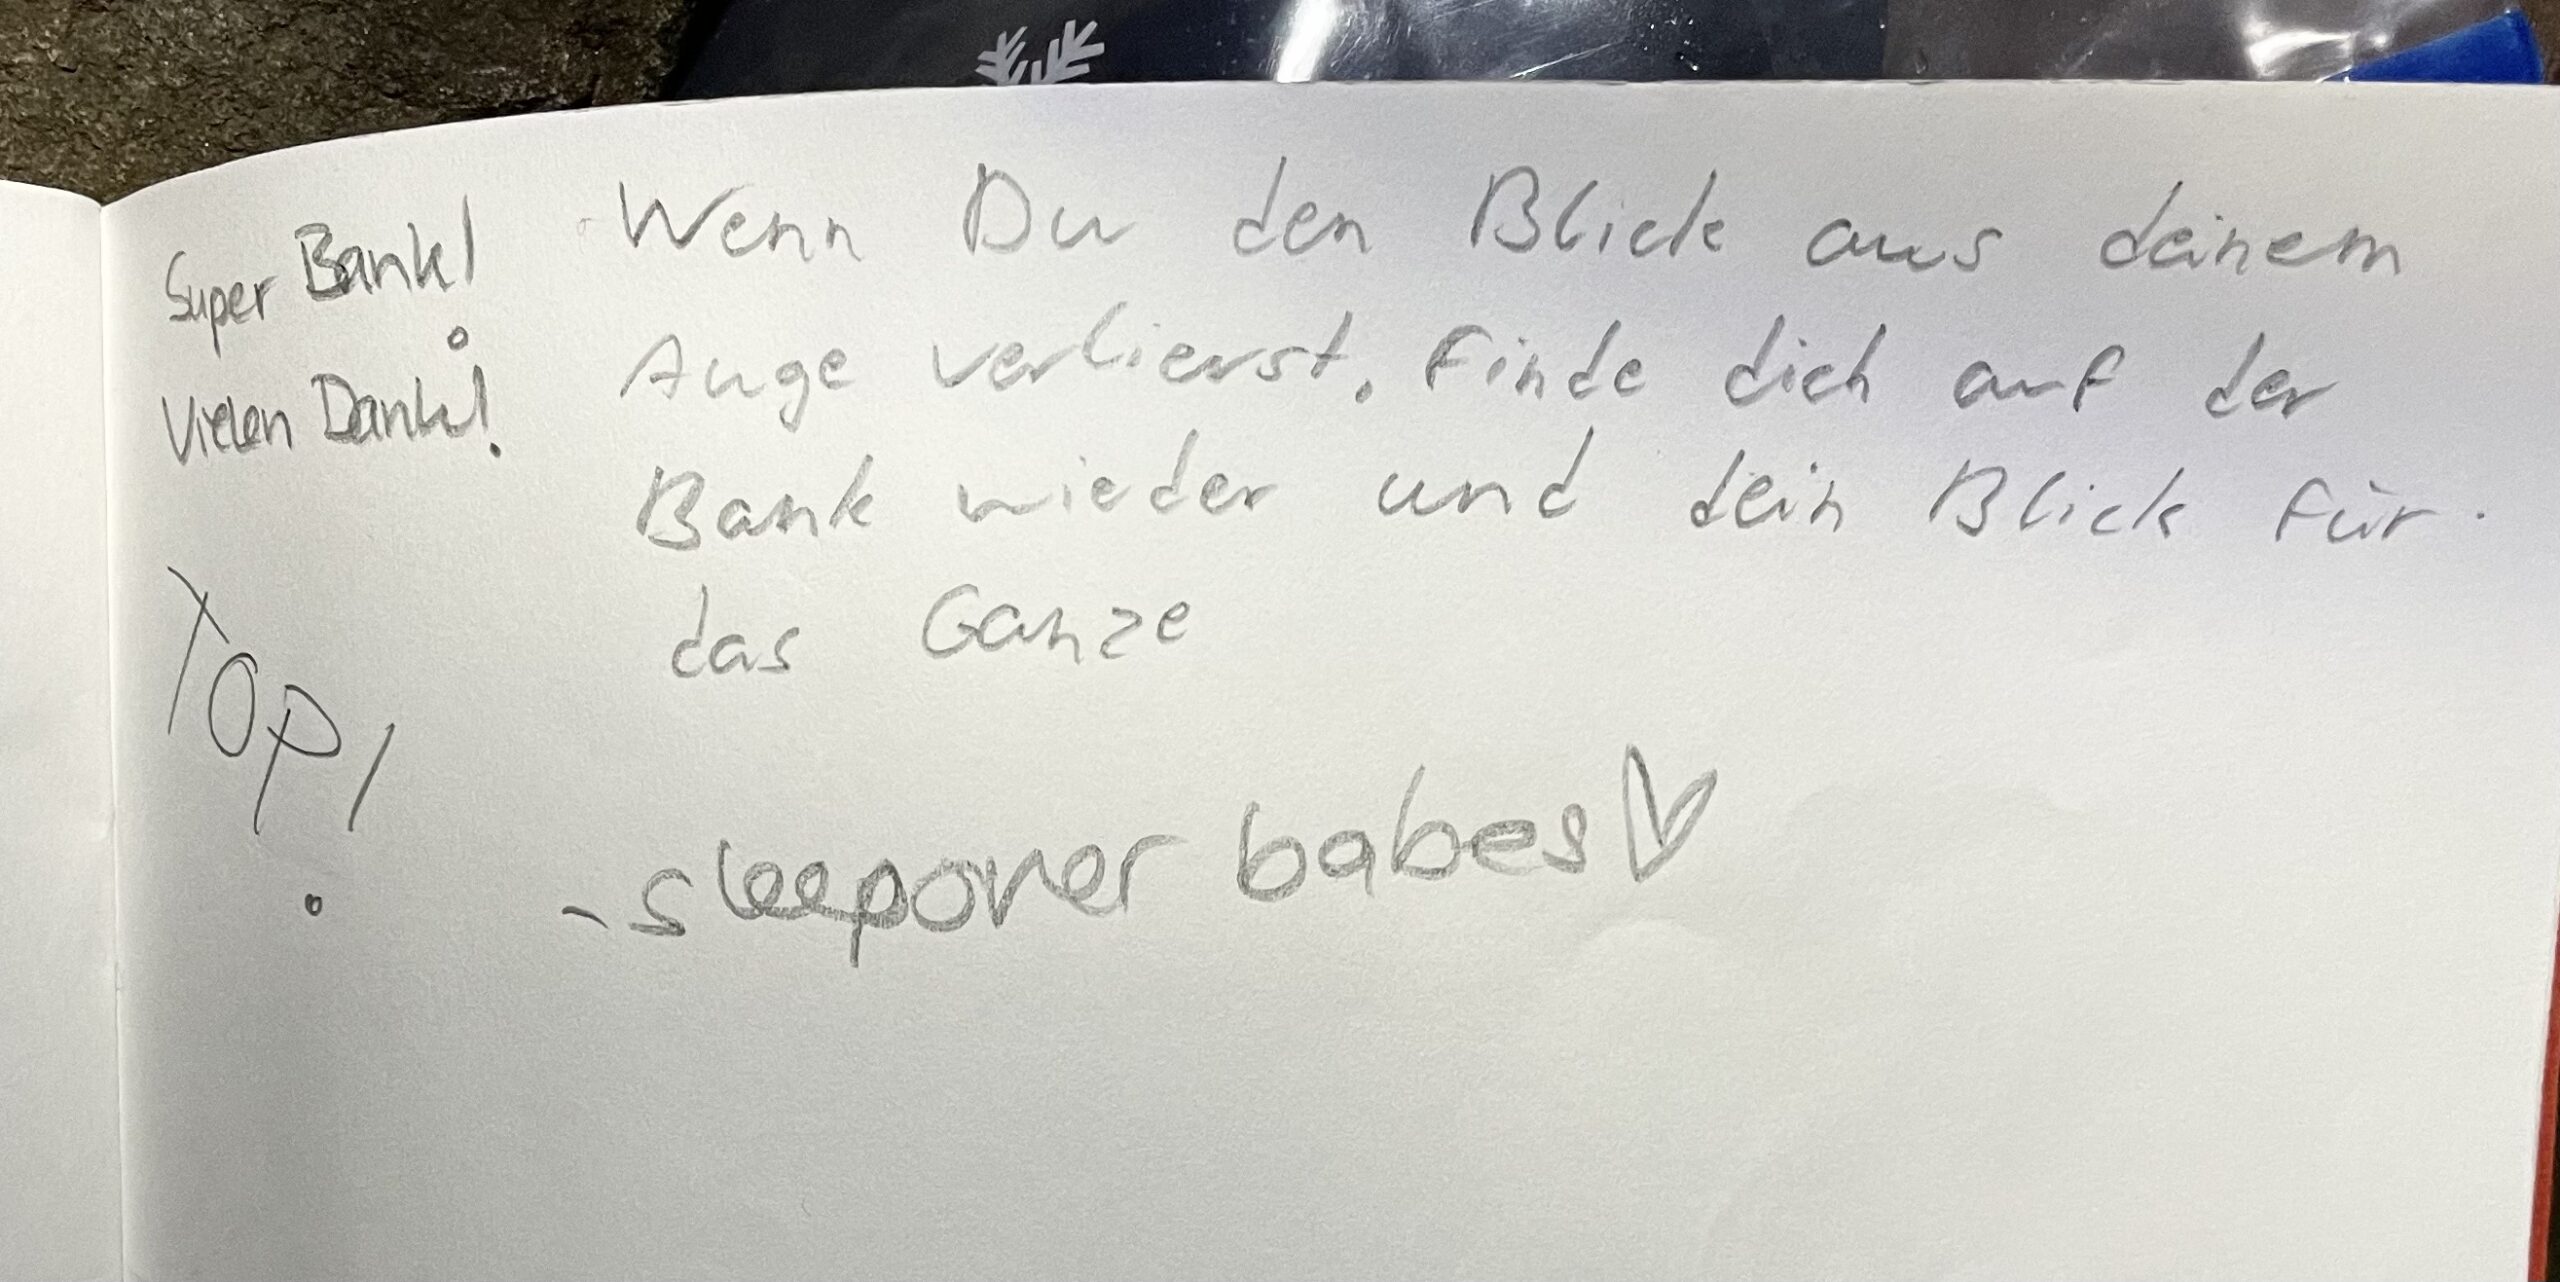 Super Bank!
Vielen Dank!
Top!
Wenn Du den Blick aus deinem
Auge verlierst. Finde dich auf der
Bank wieder und dein Blick für
das Ganze
- sleepover babes ♡